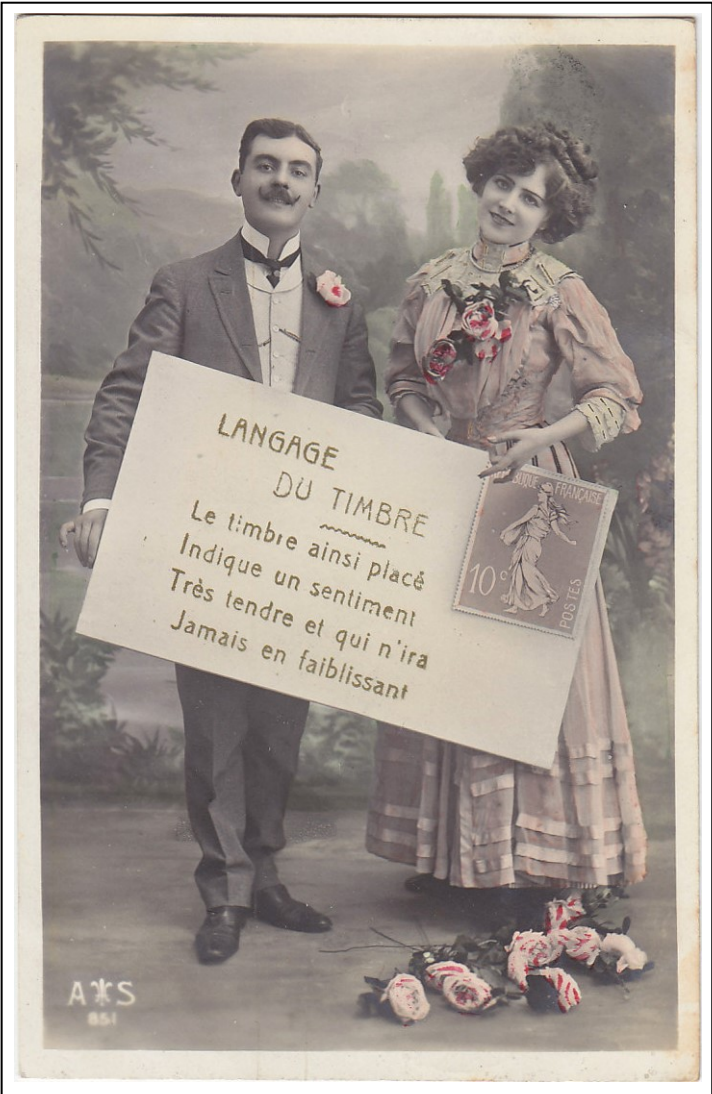 LANGAGE
DU TIMBRE
Le timbre ainsi placé
Indique un sentiment
Très tendre et qui n'ira
Jamais en faiblissant
FRANÇAISE
10 c
POSTES
A S
851